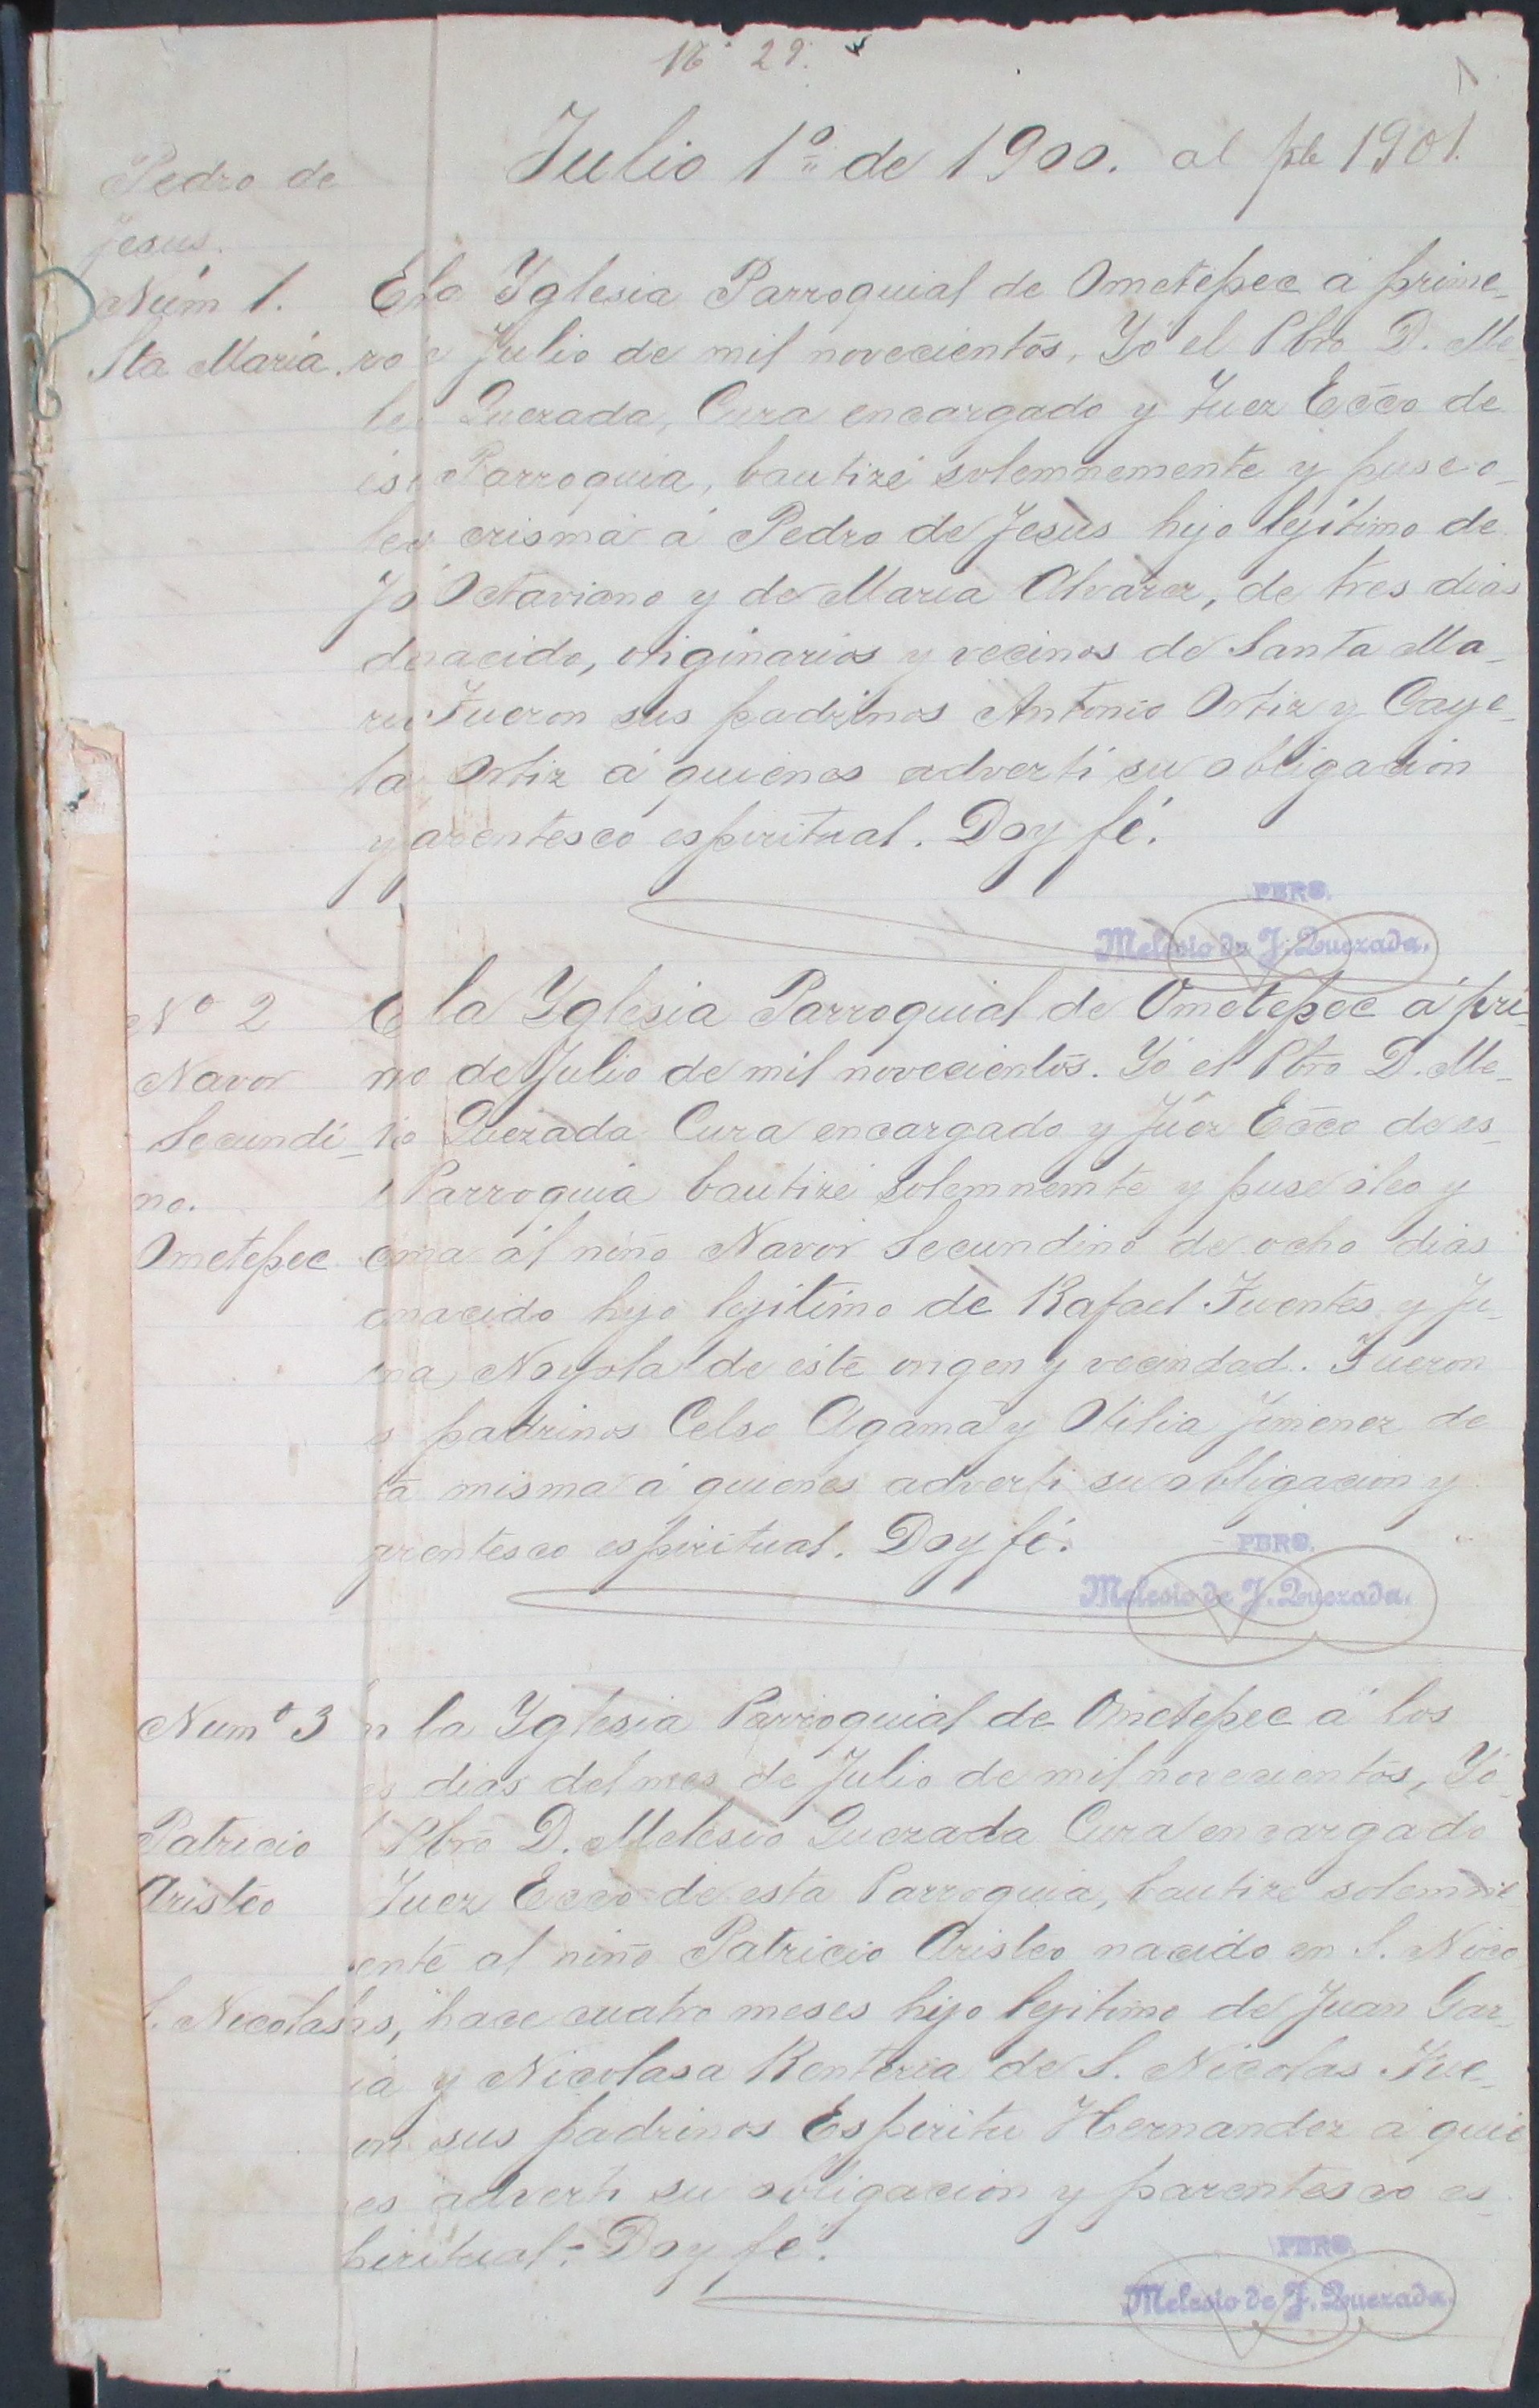 No 29.
Julio 1º de 1900. al de 1901.
Pedro de
Jesus.
Núm 1.
Sta Maria.
E la Yglesia Parroquial de Ometepec á prime_
ro e Julio de mil novecientos, Yó el Pbro D. Me_
le Quezada, Cura encargado y Juez Ecco de
es Parroquia, bautizé solemnemente y puse o_
leo crisma á Pedro de Jesus hijo lejítimo de
Jo Octaviano y de Maria Alvarez, de tres dias
de nacido, originarios y vecinos de Santa Ma_
ria Fueron sus padrinos Antonio Ortiz y Caye_
ta Ortiz á quienes advertí su obligacion
y parentesco espiritual. Doy fé.
PBRO.
Melesio de J. Quezada.
Nº 2
Navor
Secundi_
no.
Ometepec
E la Yglesia Parroquial de Ometepec á pri_
mo de Julio de mil novecientos. Yó el Pbro D. Me_
io Quezada Cura encargado y Juez Ecco de es_
Parroquia bautizé solemnemte y puse oleo y
cma al niño Navor Secundino de ocho dias
e nacido hijo lejitimo de Rafael Fuentes y Ju_
na Noyola de éste origen y vecindad. Fueron
s padrinos Celso Agama y Otilia Jimenez de
ta misma á quienes advertí su obligacion y
arentesco espiritual. Doy fé.
PBRO.
Melesio de J. Quezada.
Numº 3
Patricio
Aristeo
S. Nicolas
n la Yglesia Parroquial de Ometepec á los
es dias del mes de Julio de mil novecientos, Yó
l Pbro D. Melesio Quezada Cura encargado
Juez Ecco de esta Parroquia, bautizé solemne_
ente al niño Patricio Aristeo nacido en S. Nico
las, hace cuatro meses hijo lejitimo de Juan Gar_
ia y Nicolasa Renteria de S. Nicolas Fue_
on sus padrinos Espiritu Hernandez á quie
es adverti su obligacion y parentesco es_
piritual. Doy fé.
PBRO.
Melesio de J. Quezada.